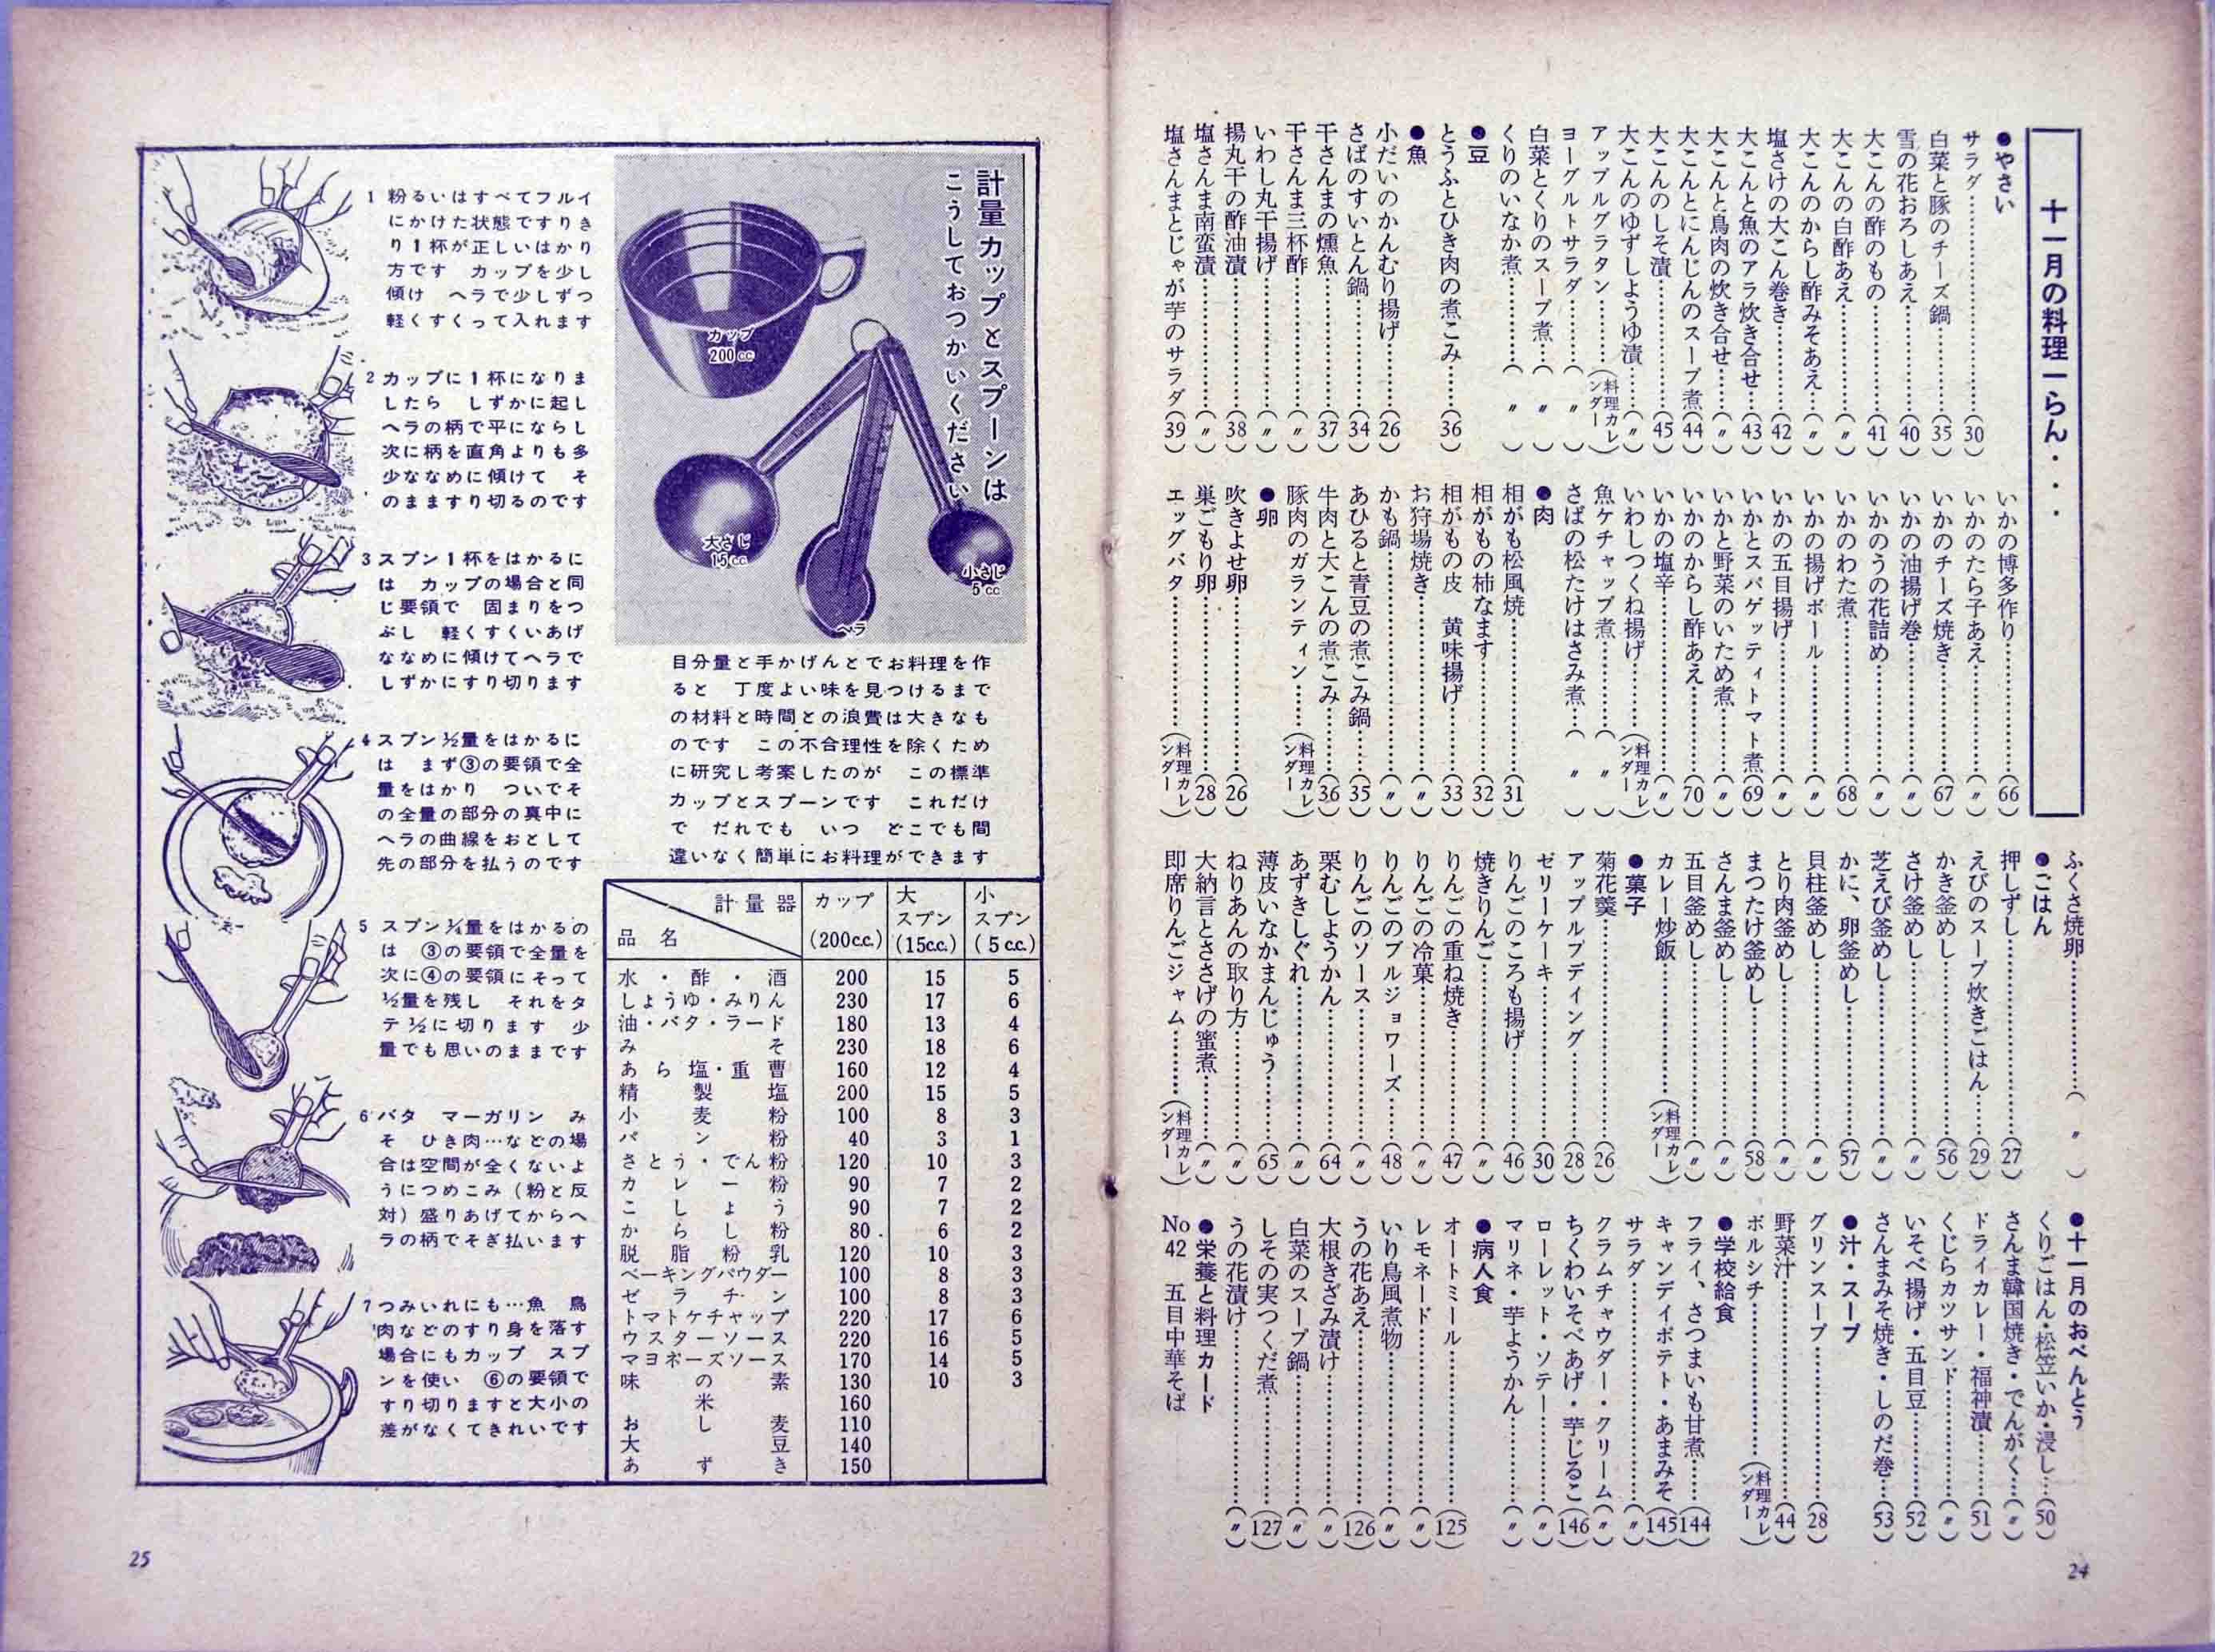 十一月の料理一らん・・・
●やさい
サラダ……………(30)
白菜と豚のチーズ鍋……(35)
雪の花おろしあえ……(40)
大こんの酢のもの……(41)
大こんの白酢あえ……(〃)
大こんのからし酢みそあえ…(〃)
塩さけの大こん巻き……(42)
大こんと魚のアラ炊き合せ…(43)
大こんと鳥肉の炊き合せ…(〃)
大こんとにんじんのスープ煮(44)
大こんのしそ漬………(45)
大こんのゆずしようゆ漬…(〃)
アップルグラタン……(料理カレンダー)
ヨーグルトサラダ……(〃)
白菜とくりのスープ煮…(〃)
くりのいなか煮………(〃)
●豆
とうふとひき肉の煮こみ…(36)
●魚
小だいのかんむり揚げ…(26)
さばのすいとん鍋……(34)
干さんまの燻魚………(37)
干さんま三杯酢………(〃)
いわし丸干揚げ………(〃)
揚丸干の酢油漬………(38)
塩さんま南蛮漬………(〃)
塩さんまとじゃが芋のサラダ(39)
いかの博多作り………(66)
いかのたら子あえ……(〃)
いかのチーズ焼き……(67)
いかの油揚げ巻………(〃)
いかのうの花詰め……(〃)
いかのわた煮…………(68)
いかの揚げボール……(〃)
いかの五目揚げ………(〃)
いかとスパゲッティトマト煮(69)
いかと野菜のいため煮…(〃)
いかのからし酢あえ……(70)
いかの塩辛……………(〃)
いわしつくね揚げ……(料理カレンダー)
魚ケチャップ煮………(〃)
さばの松たけはさみ煮…(〃)
●肉
相がも松風焼…………(31)
相がもの柿なます……(32)
相がもの皮　黄味揚げ…(33)
お狩場焼き……………(〃)
かも鍋…………………(〃)
あひると青豆の煮こみ鍋…(35)
牛肉と大こんの煮こみ…(36)
豚肉のガランティン…(料理カレンダー)
●卵
吹きよせ卵……………(26)
巣ごもり卵……………(28)
エッグバタ……………(料理カレンダー)
ふくさ焼卵……………(〃)
●ごはん
押しずし………………(27)
えびのスープ炊きごはん…(29)
かき釜めし……………(56)
さけ釜めし……………(〃)
芝えび釜めし…………(〃)
かに、卵釜めし………(57)
貝柱釜めし……………(〃)
とり肉釜めし…………(〃)
まつたけ釜めし………(58)
さんま釜めし…………(〃)
五目釜めし……………(〃)
カレー炒飯……………(料理カレンダー)
●菓子
菊花羹…………………(26)
アップルプディング……(28)
ゼリーケーキ…………(30)
りんごのころも揚げ……(46)
焼きりんご……………(〃)
りんごの重ね焼き……(47)
りんごの冷菓…………(〃)
りんごのブルジョワーズ…(48)
りんごのソース………(〃)
栗むしようかん………(64)
あずきしぐれ…………(〃)
薄皮いなかまんじゅう…(65)
ねりあんの取り方……(〃)
大納言とささげの蜜煮…(〃)
即席りんごジャム……(料理カレンダー)
●十一月のおべんとう
くりごはん・松笠いか・浸し…(50)
さんま韓国焼き・でんがく…(〃)
ドライカレー・福神漬……(51)
くじらカツサンド………(〃)
いそべ揚げ・五目豆……(52)
さんまみそ焼き・しのだ巻…(53)
●汁・スープ
グリンスープ…………(28)
野菜汁…………………(44)
ボルシチ………………(料理カレンダー)
●学校給食
フライ、さつまいも甘煮…(144)
キャンデイポテト・あまみそ(145)
サラダ…………………(〃)
クラムチャウダー・クリーム(〃)
ちくわいそべあげ・芋じるこ(146)
ローレット・ソテー……(〃)
マリネ・芋ようかん……(〃)
●病人食
オートミール…………(125)
レモネード……………(〃)
いり鳥風煮物…………(〃)
うの花あえ……………(126)
大根きざみ漬け………(〃)
白菜のスープ鍋………(〃)
しその実つくだ煮……(127)
うの花漬け……………(〃)
●栄養と料理カード
No 42　五目中華そば
24
計量カップとスプーンは
こうしておつかいください
カップ
200cc
大さじ
15cc
小さじ
5cc
ヘラ
目分量と手かげんとでお料理を作
ると　丁度よい味を見つけるまで
の材料と時間との浪費は大きなも
のです　この不合理性を除くため
に研究し考案したのが　この標準
カップとスプーンです　これだけ
で　だれでも　いつ　どこでも間
違いなく簡単にお料理ができます
1 粉るいはすべてフルイ
にかけた状態ですりき
り1杯が正しいはかり
方です　カップを少し
傾け　ヘラで少しずつ
軽くすくって入れます
2 カップに1杯になりま
したら　しずかに起し
ヘラの柄で平にならし
次に柄を直角よりも多
少ななめに傾けて　そ
のまますり切るのです
3 スプン1杯をはかるに
は　カップの場合と同
じ要領で　固まりをつ
ぶし　軽くすくいあげ
ななめに傾けてヘラで
しずかにすり切ります
4 スプン½量をはかるに
は　まず③の要領で全
量をはかり　ついでそ
の全量の部分の真中に
ヘラの曲線をおとして
先の部分を払うのです
5 スプン¼量をはかるの
は　③の要領で全量を
次に④の要領にそって
½量を残し　それをタ
テ½に切ります　少
量でも思いのままです
6 バタ　マーガリン　み
そ　ひき肉…などの場
合は空間が全くないよ
うにつめこみ（粉と反
対）盛りあげてからヘ
ラの柄でそぎ払います
7 つみいれにも…魚　鳥
肉などのすり身を落す
場合にもカップ　スプ
ンを使い　⑥の要領で
すり切りますと大小の
差がなくてきれいです
計量器　カップ(200cc.)　大スプン(15cc.)　小スプン(5cc.)
品名
水・酢・酒　200　15　5
しょうゆ・みりん　230　17　6
油・バタ・ラード　180　13　4
みそ　230　18　6
あら塩・重曹　160　12　4
精製塩　200　15　5
小麦粉　100　8　3
パン粉　40　3　1
さとう・でん粉　120　10　3
カレー粉　90　7　2
こしょう　90　7　2
からし粉　80　6　2
脱脂粉乳　120　10　3
ベーキングパウダー　100　8　3
ゼラチン　100　8　3
トマトケチャップ　220　17　6
ウスターソース　220　16　5
マヨネーズソース　170　14　5
味の素　130　10　3
米　160
おし麦　110
大豆　140
あずき　150
25